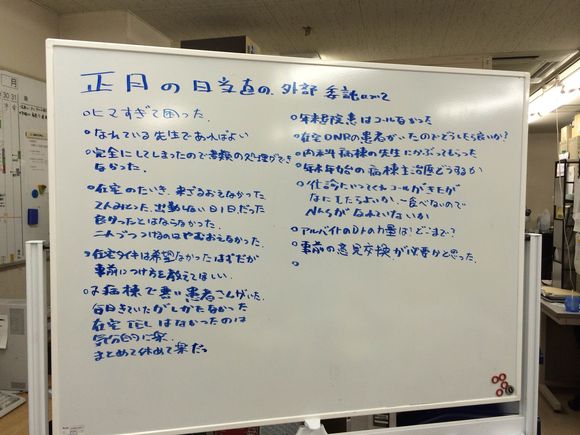 正月の日当直の外部委託について
○ヒマすぎて困った.
○なれている先生であればよい
○完全にしてしまったので書類の処理ができ
なかった.
○在宅のたいき. 来ざるおえなかった
2人みとった. 出勤しない日1日だった
良かったとはならなかった.
二人づつつけるのはやむおえなかった.
○在宅タイキは希望なかったはずだが
事前につけ方を教えてほしい.
病棟で悪い患者さんがいた.
毎日きていたがしかたなかった
在宅TELはなかったのは
気分的に楽.
まとめて休めて楽だっ
○年末院患はコールなかった
○在宅DNRの患者がいたのでどうしたら良いか?
○内科病棟の先生にかぶってもらった
○年末年始の病棟主治医どうするか
コールがきたが
なにしたらよいか. 食べないので
Nsがなれていないか
○アルバイトのDrの力量はどこまで?
○事前の意見交換が必要かと思った.